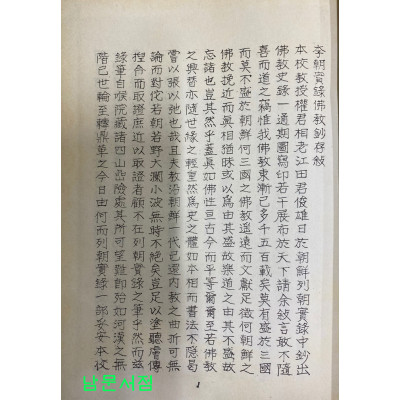 李朝實錄佛敎鈔存敍
本校敎授權君相老江田君俊雄日於朝鮮列朝實錄中鈔出
佛敎史錄一通期圖寫印若干展布於天下請余敍言敢不隨
善而道之竊惟我佛敎東漸已多千五百載矣莫有盛於三國
而莫不盛於朝鮮何三國之佛敎遙遠而文獻足徵朝鮮之
佛敎挽近而眞相猶昧或以爲由其盛故樂道之由其不盛故
忘諸也豈其然乎蓋眞如佛性亘古今而平等爾爾至若佛敎
之興替亦隨世緣之輕重然爲史之體如本相而書法不隱曷
嘗以張以弛也哉且夫敎沿朝鮮一代已還內敎之曲折可無
論而對佗若朝若野大瀾小波無時不絶矣豈足以塗聽膚傳
捏合而取證庶近以取證者顧不在列朝實錄之筆乎然而玆
錄筆自喉院藏諸四山嵒險處其所可望難卽殆如河漢之無
階已世輪至轉鼎革之今日由何而列朝實錄一部妥妥本校
1
남문서점